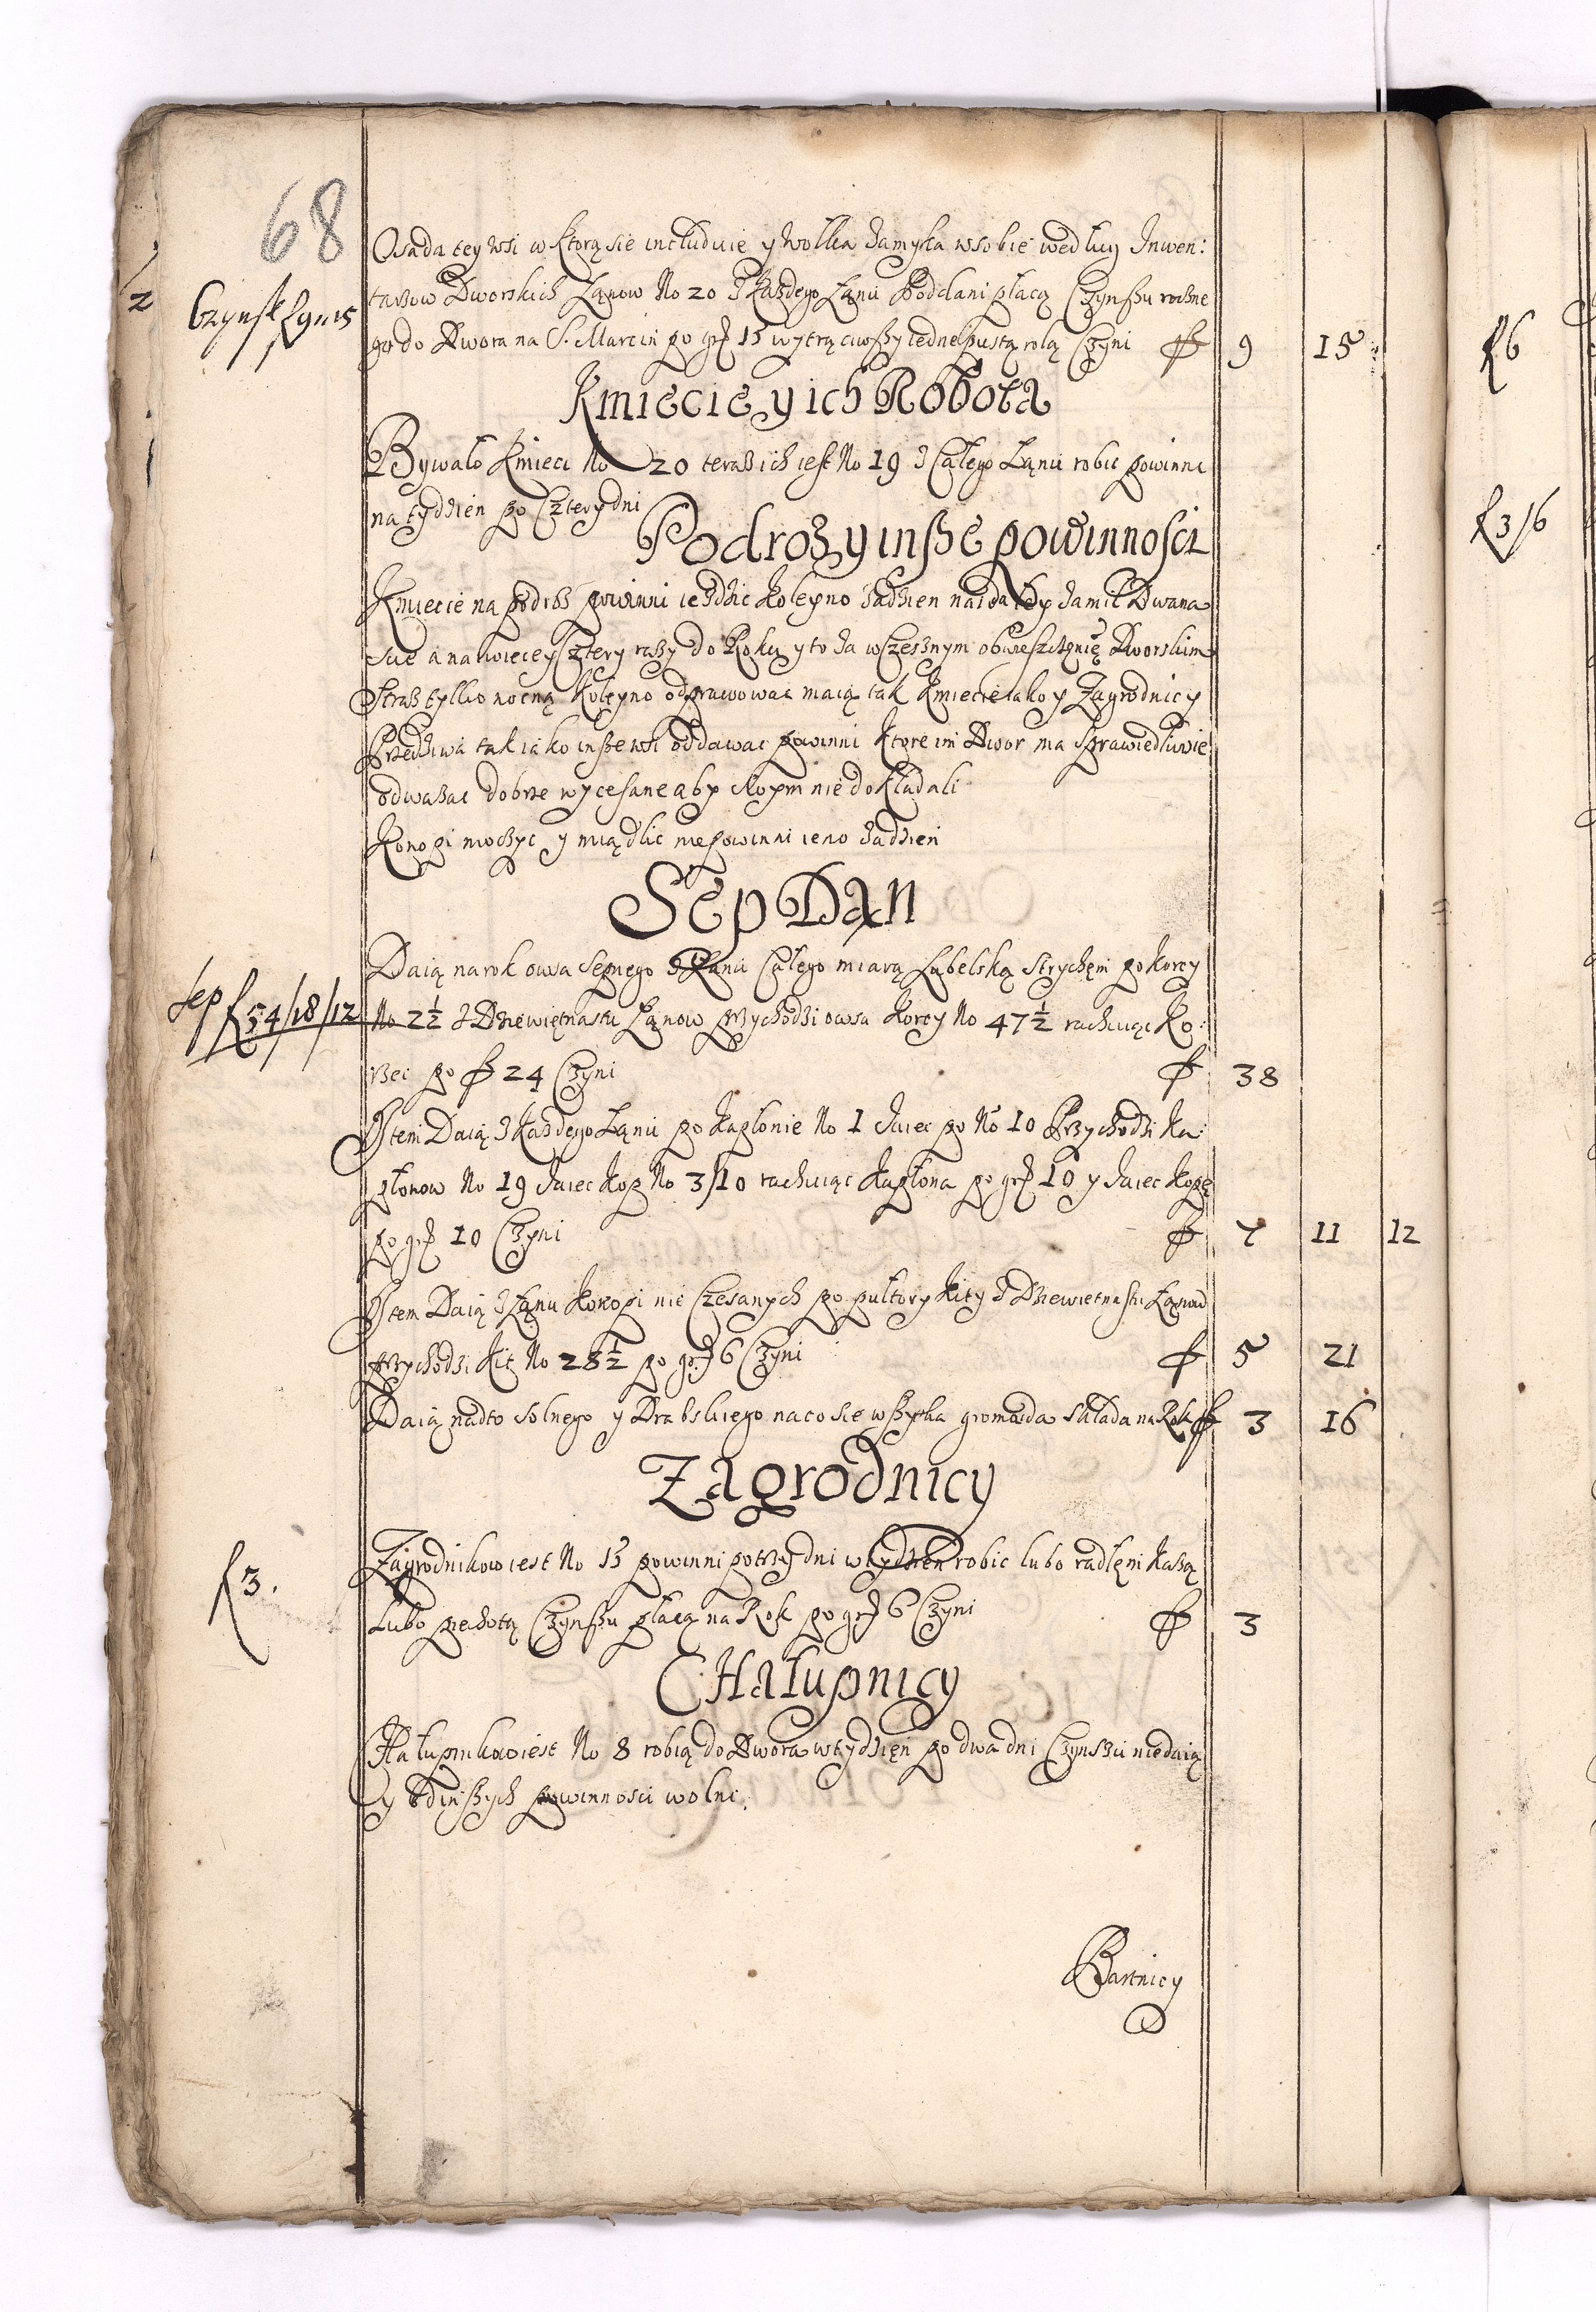 68
Osada tey wsi w ktorą sie includuie y wolka Zamyska wsobie według Inwen:
tarzow Dworskich Łanow No 20 Z kazdego Łanu Poddani płacą Czynszu roczne
Czynsz f 9 11 15
go do Dwora na S. Marcin po gr 15 wytrąciwszy iednę pustą rolą Czyni f 9 15
Kmiecie y ich Robota
Bywało Kmieci No 20 teraz ich iest No 19 Z Całego Łanu robic powinni
na tydzien po Cztery dni
Podroz y insze powinnosci
Kmiecie na podroz powinni iezdzic koleyno Zadzien naidaley Zamil Dwana
scie a nawiecey Cztery razy do Roku y to Za wczesnym obwieszczenię Dworskim
Straz tylko nocną koleyno odprawowac maią tak Kmiecie iako y Zagrodnicy
Przędziwa tak iako insze wsi oddawac powinni ktore im Dwor ma sprawiedliwie
odwazac dobrze wyczesane aby swym nie dokładali
Konopi moczyc y miądlic niepowinni ieno Zadzien
Sep Dan
Daią na rok owsa Sepnego Z Łanu Całego miarą Lubelską Strychem po korcy
Sep f 54/18/12
No 2½ Z Dziewiętnastu Łanow przychodzi owsa Korcy No 47½ rachuiąc Ko:
rzec po gr 24 Czyni f 38
Item Daią Z kazdego Łanu po kapłonie No 1 Jaiec po No 10 Przychodzi Ka:
płonow No 19 Jaiec kop No 3/10 rachuiąc kapłona po gr 10 y Jaiec kopę
po gr 10 Czyni f 7 11 12
Item Daią Z Łanu Konopi nie Czesanych po pułtory kity Z Dziewietnastu Łanow
przychodzi kit No 28½ po gr 6 Czyni f 5 21
Daią nadto Solnego y Drabskiego naco sie wszytka gromada składa na Rok f 3 16
Zagrodnicy
Zagrodnikow iest No 15 powinni po trzy dni w tydzien robic lubo radłem kazą
f 3.
Lubo piechotą Czynszu płacą na Rok po gr 6 Czyni f 3
CHałupnicy
CHałupnikow iest No 8 robią do Dwora w tydzien po dwa dni Czynszu niedaią
y od inszych powinnosci wolni.
Bartnicy
f 6
f 3/6